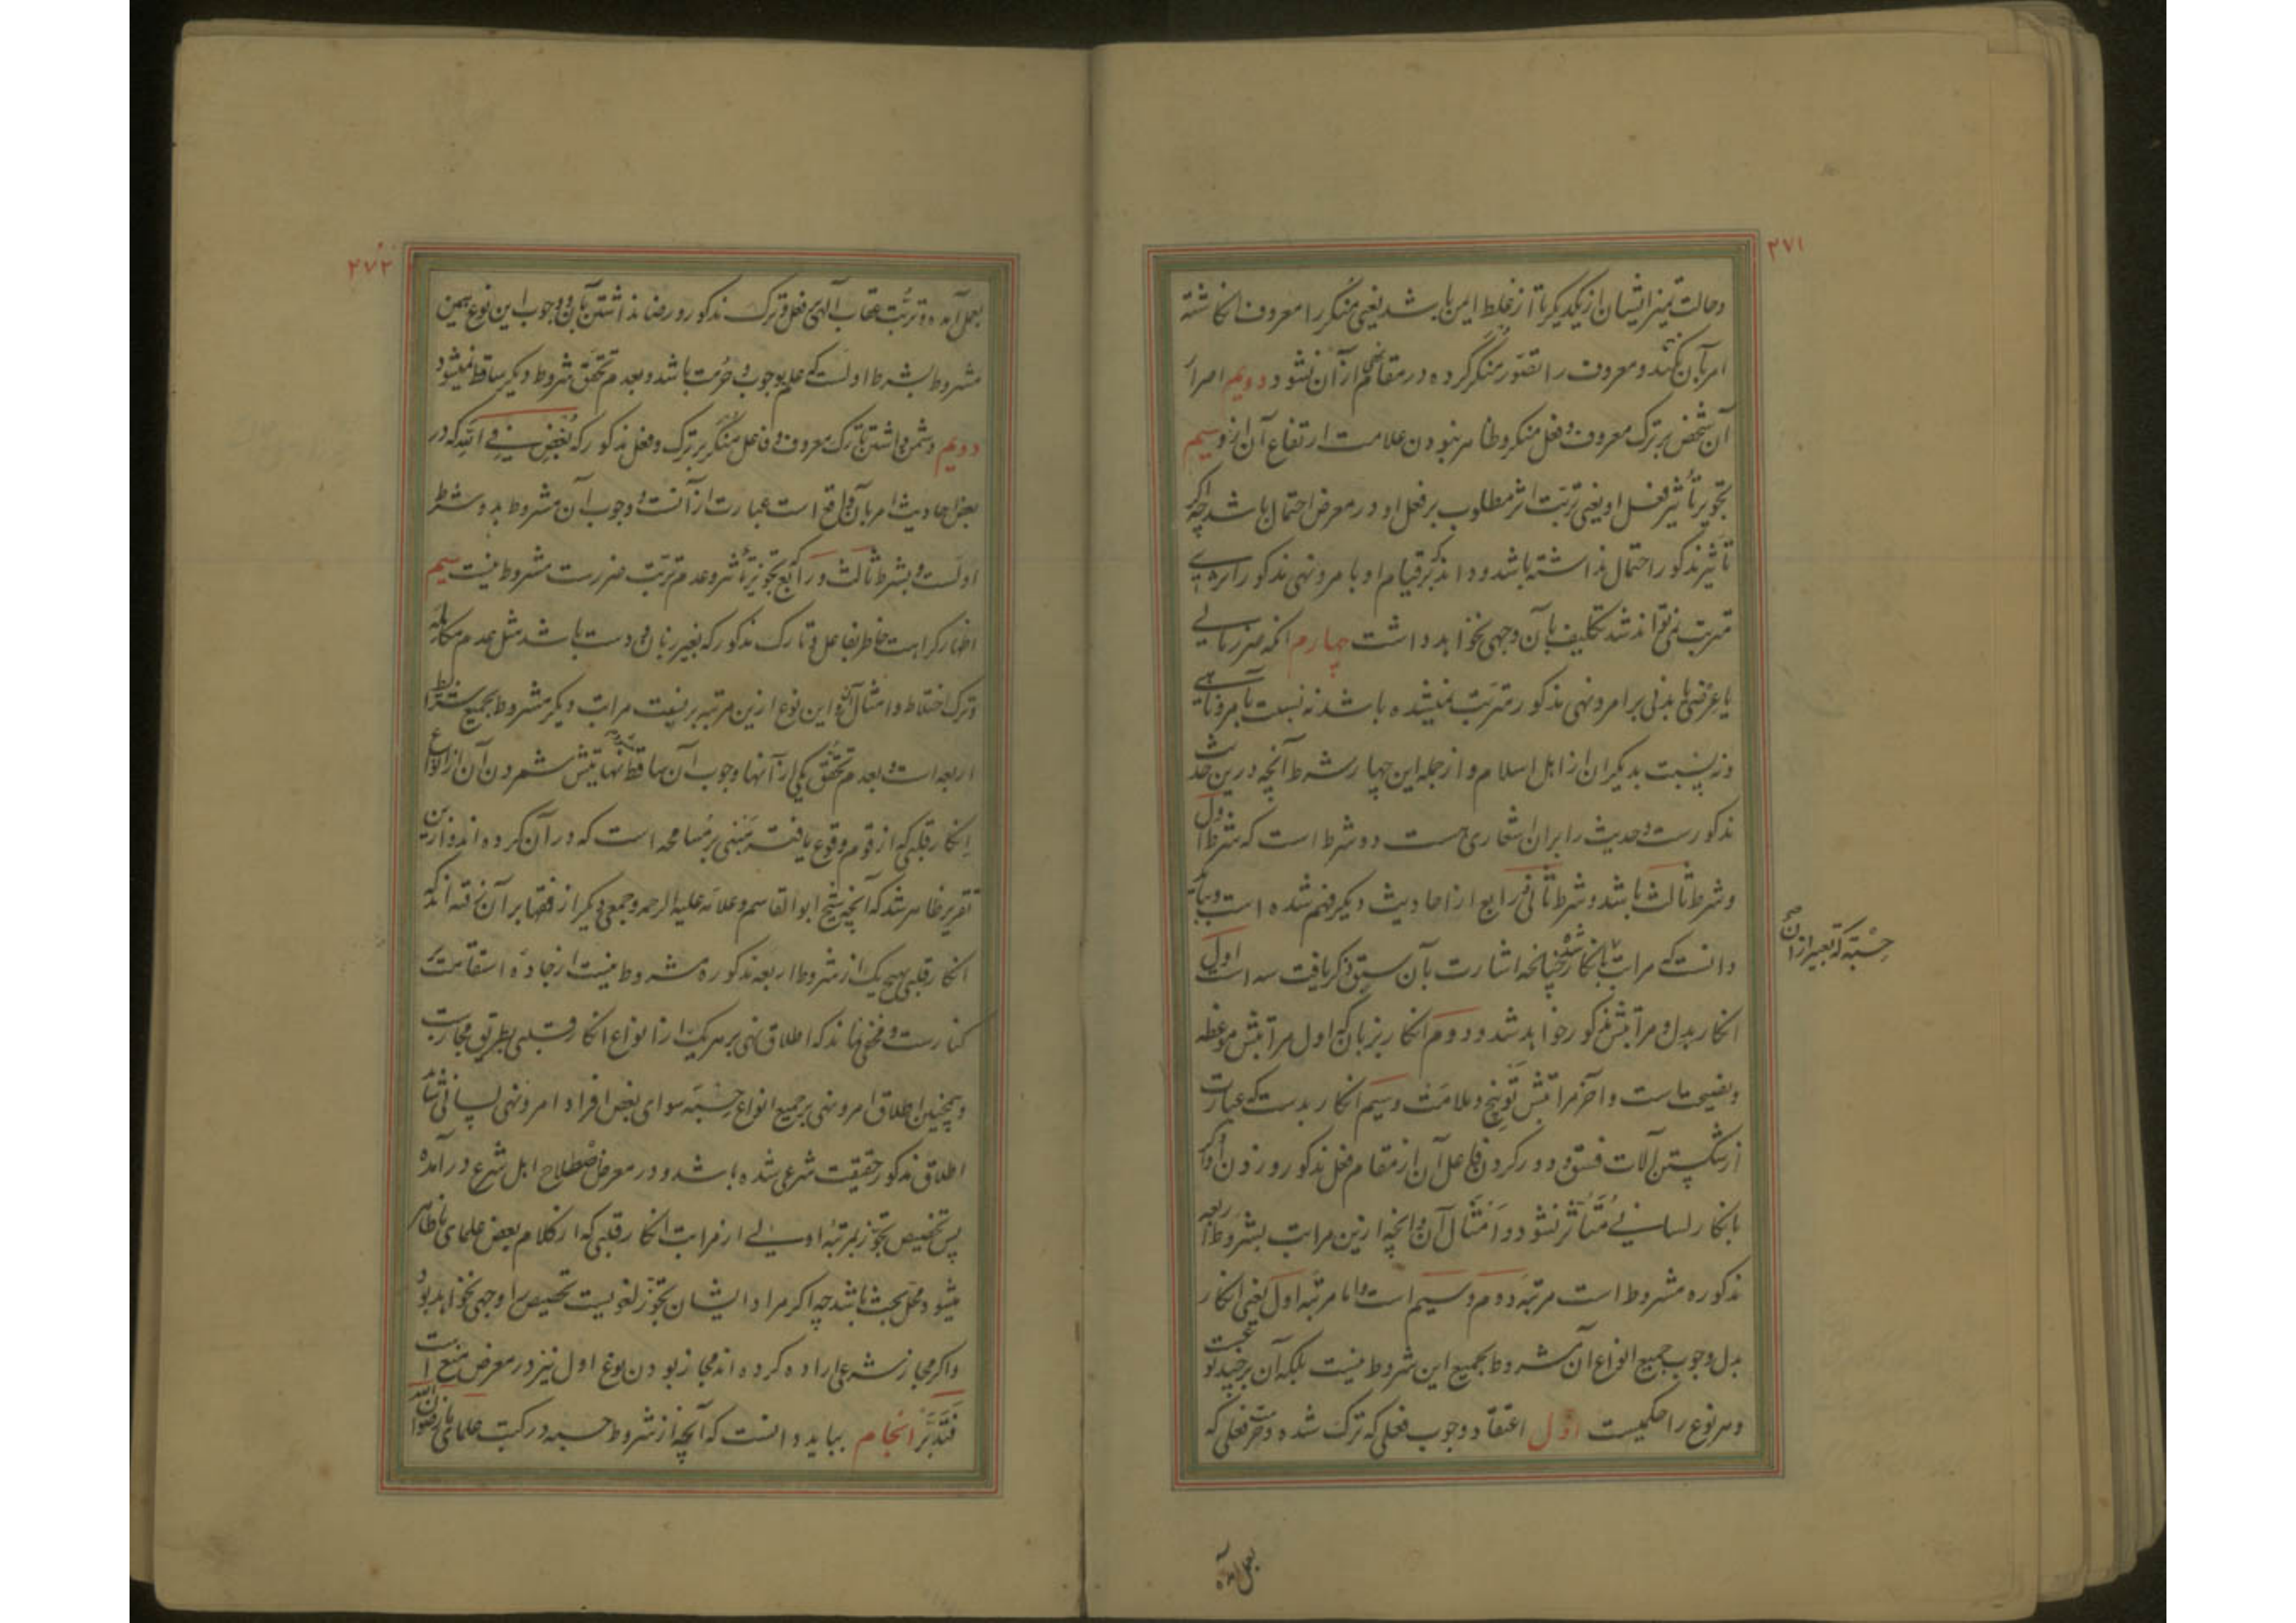 ۲۷۱
وحالت تمیز ایشان از یکدیگر تا از غلط ایمن باشد یعنی منکر را معروف انکاشته
امر بآن نکند و معروف را تصور منکر کرده در مقام نهی از آن نشود دویم اصرار
آن شخص بر ترک معروف و فعل منکر و ظاهر نبودن علامت ارتفاع آن ازو سیم
تجویز تأثیر فعل او یعنی ترتب اثر مطلوب بر فعل او در معرض احتمال باشد چه اکر
تأثیر مذکور احتمال نداشته باشد و داند که بر قیام او بامر و نهی مذکور اثری
مترتب نمی تواند شد تکلیف بآن وجهی نخواهد داشت چهارم انکه ضرر مالی
یا عرضی یا بدنی بر امر و نهی مذکور مترتب نمیشده باشد نه نسبت بآمر و ناهی
و نه نسبت بدیکران از اهل اسلام و از جمله این چهار شرط آنچه درین حدیث
مذکورست و حدیث را بران اشعاری هست دو شرط است که شرط اول
و شرط ثالث باشد و شرط ثانی و رابع از احادیث دیکر فهم شده است و بباید
دانست که مراتب انکار چنانچه اشارت بآن سبق ذکر یافت سه است اول
حسبة که تعبیر ازان
انکار بدل و مراتبش مذکور خواهد شد و دوم انکار بزبان که اول مراتبش موعظه
و نصیحت است و آخر مراتبش توبیخ و ملامت و سیم انکار بدست که عبارت
از شکستن آلات فسق و دور کردن فاعل آن از مقام فعل مذکور و زدن او اکر
بانکار لسانی متأثر نشود و امثال آن و انچه ازین مراتب بشروط اربعه
مذکوره مشروط است مرتبه دوم و سیم است و اما مرتبه اول یعنی انکار
بدل وجوب جمیع انواع آن مشروط بجمیع این شروط نیست بلکه آن بر چند نوعست
و هر نوع را حکمیست اول اعتقاد وجوب فعلی که ترک شده و حرمت فعلی که
بعمل آمده
۲۷۲
بعمل آمده و ترتب عقاب آلهی بر فعل و ترک مذکور و رضا نداشتن بآن و وجوب این نوع همین
مشروط بشرط اولست که علم بوجوب و حرمت باشد و بعدم تحقق شروط دیکر ساقط نمیشود
دویم دشمن داشتن تارک معروف و فاعل منکر بر ترک و فعل مذکور که بغض فی الله که در
بعض احادیث امر بآن واقع است عبارت از آنست و وجوب آن مشروط بدو شرط
اولست و بشرط ثالث و رابع تجویز تأثیر و عدم ترتب ضررست مشروط نیست سیم
اظهار کراهت خاطر بفاعل و تارک مذکور که بغیر زبان و دست باشد مثل عدم مکالمه
و ترک اختلاط و امثال آن و این نوع ازین مرتبه برنیعت مراتب دیکر مشروط بجمیع شرایط
اربعه است و بعدم تحقق یکی از آنها وجوب آن ساقط نهایتش شمردن آن از انواع
انکار قلبی که از قوم وقوع یافته مبنی بر مسامحه است که در آن کرده اند و ازین
تقریر ظاهر شد که آنچه شیخ ابو القاسم و علامه علیه الرحمه و جمعی دیکر از فقها بر آن رفته اند که
انکار قلبی بهیچ یک از شروط اربعه مذکوره مشروط نیست از جادۀ استقامت بر
کنارست و مخفی نماند که اطلاق نهی بر هر یک از انواع انکار قلبی بطریق مجازست
و همچنین اطلاق امر و نهی بر جمیع انواع حسبة سوای بعض افراد امر و نهی لسانی شاید
اطلاق مذکور حقیقت شرعی شده باشد و در معرض اصطلاح اهل شرع در آمده
پس تخصیص تجوز بمرتبۀ اولی از مراتب انکار قلبی که از کلام بعض علمای ما ظاهر
میشود محل بحث باشد چه اکر مراد ایشان تجوز لغویست تخصیص را وجهی نخواهد بود
و اکر مجاز شرعی اراده کرده اند مجاز بودن نوع اول نیز در معرض منع است
فتدبر انجام بباید دانست که آنچه از شروط حسبه در کتب علمای ما رضوان الله